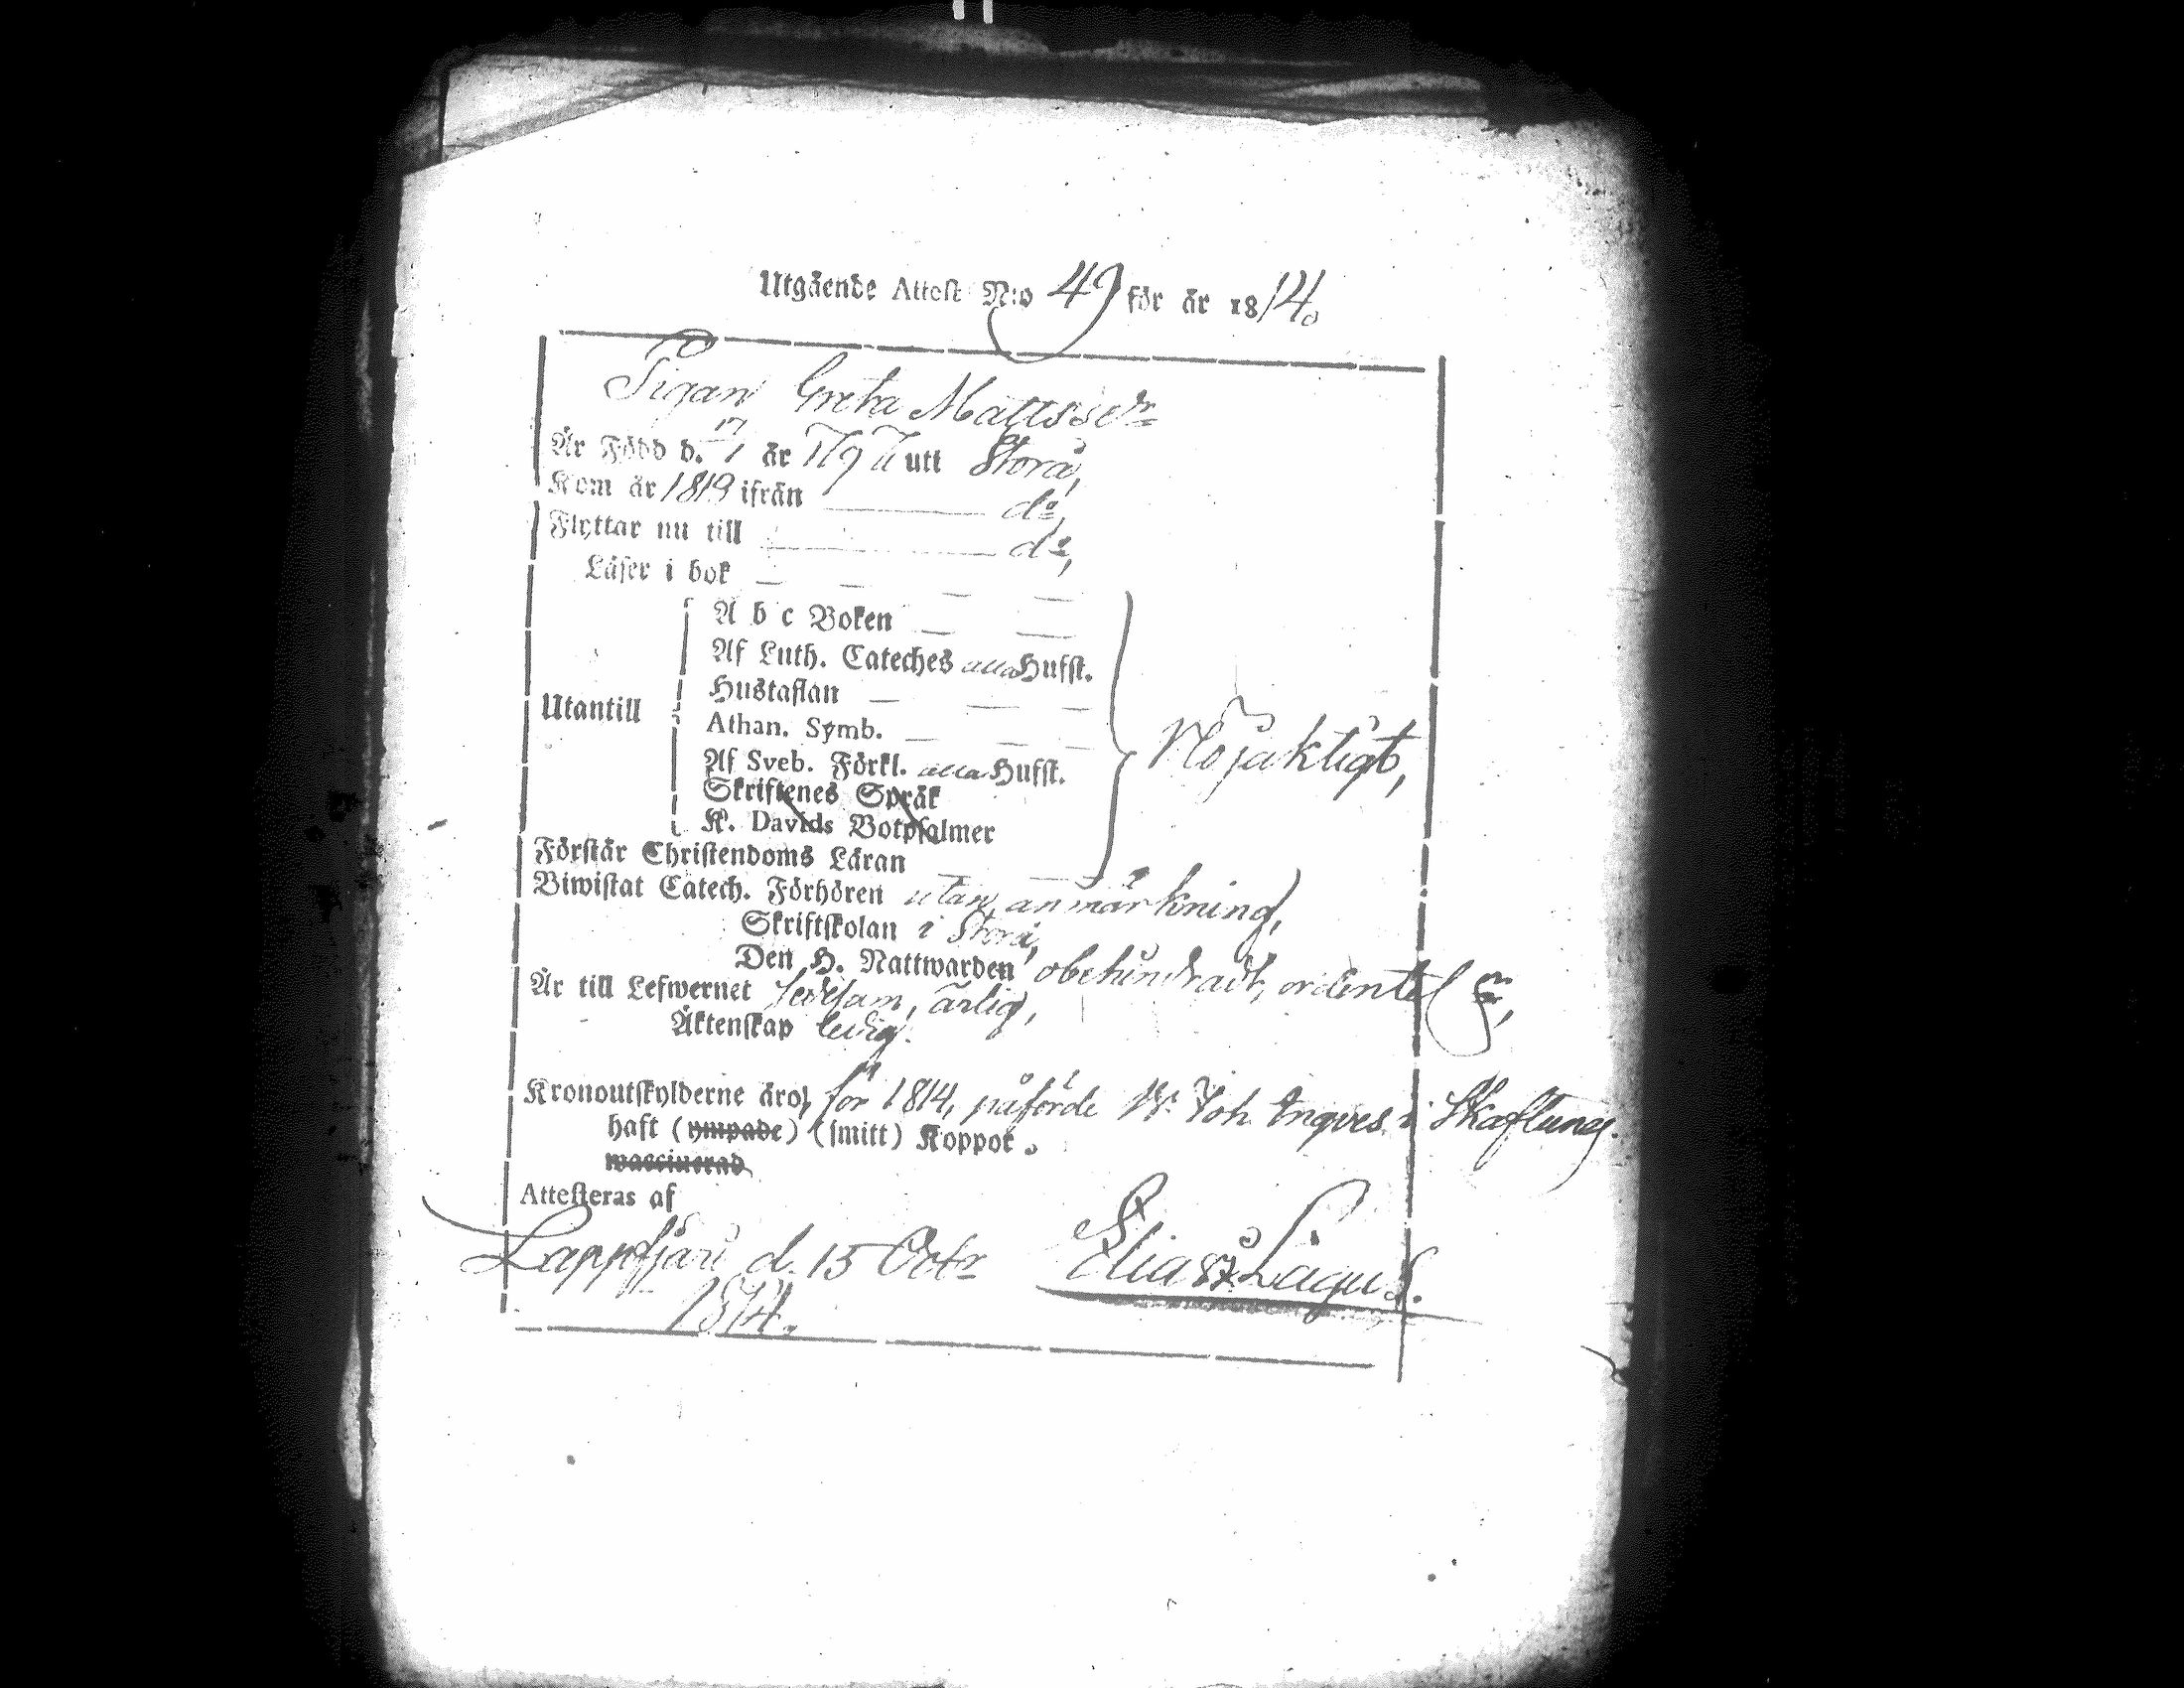 Utgående Attest N:o 49 för år 1814.
Pigan Greta Mattsdr
Är Född d. 17/7 år 179 utt Storå,
Kom år 1813 ifrån ___ do,
Flyttar nu till ___ do,
Läser i bok — — — —
A b c Boken — —
Af Luth. Cateches alla Hufst.
Hustaflan — — —
Utantill
Athan. Symb. — — —
Nöjaktigt,
Af Sveb. Förkl. alla Hufst.
Skriftenes Språk
K. Davids Botpsalmer
Förstår Christendoms Läran — —
Biwistat Catech. Förhören utan anmärkning,
Skriftskolan i Storå,
Den H. Nattwarden obehindradt, ordentel
Är till Lefwernet sedesam, ärlig,
Äktenskap ledig.
Kronoutskylderne äro, för 1814, påförde Joh. Ingves i Skaftung.
haft (ympade) (smitt) Koppor.
waccinerad
Attesteras af
Lappfjärd d. 15 Octr Elias Lagus.
1814.